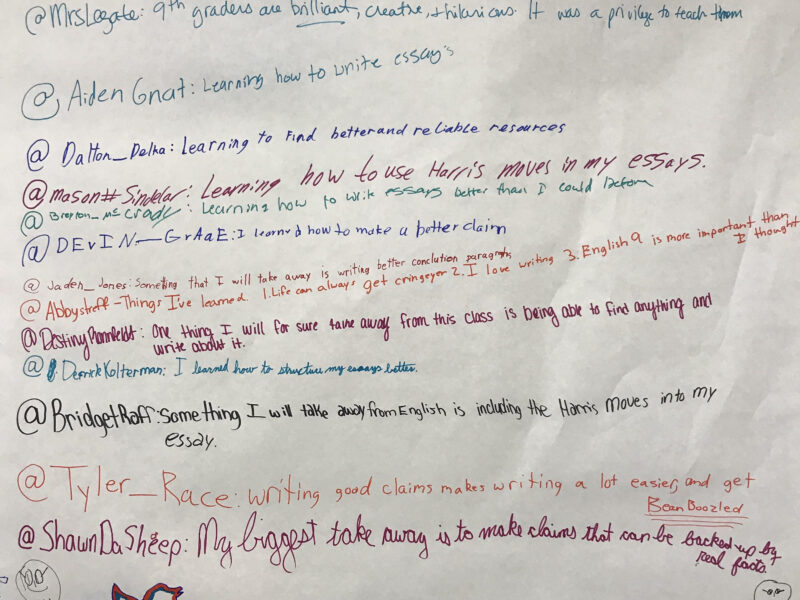 @MrsLegate: 9th graders are brilliant, creative, + hilarious. It was a privilege to teach them
@Aiden Gnat: Learning how to write essay's
@Dalton_Delka: Learning to find better and reliable resources
@mason#Sindelar: Learning how to use Harris moves in my essays.
@ : Learning how to write essays better than I could before
@DEvIN_GrAaE: I learned how to make a better claim
@Jaden_Jones: Something that I will take away is writing better conclution paragraphs
@Abbystreff - Things I've learned. 1. Life can always get cringeyer 2. I love writing 3. English 9 is more important than
I thought
@Destiny : One thing I will for sure take away from this class is being able to find anything and
write about it.
@DerrickKolterman: I learned how to structure my essays better.
@BridgetRaff: Something I will take away from English is including the Harris Moves into my
essay.
@Tyler_Race: writing good claims makes writing a lot easier, and get
BeanBoozled
@ShawnDaSheep: My biggest take away is to make claims that can be backed up by
real facts.